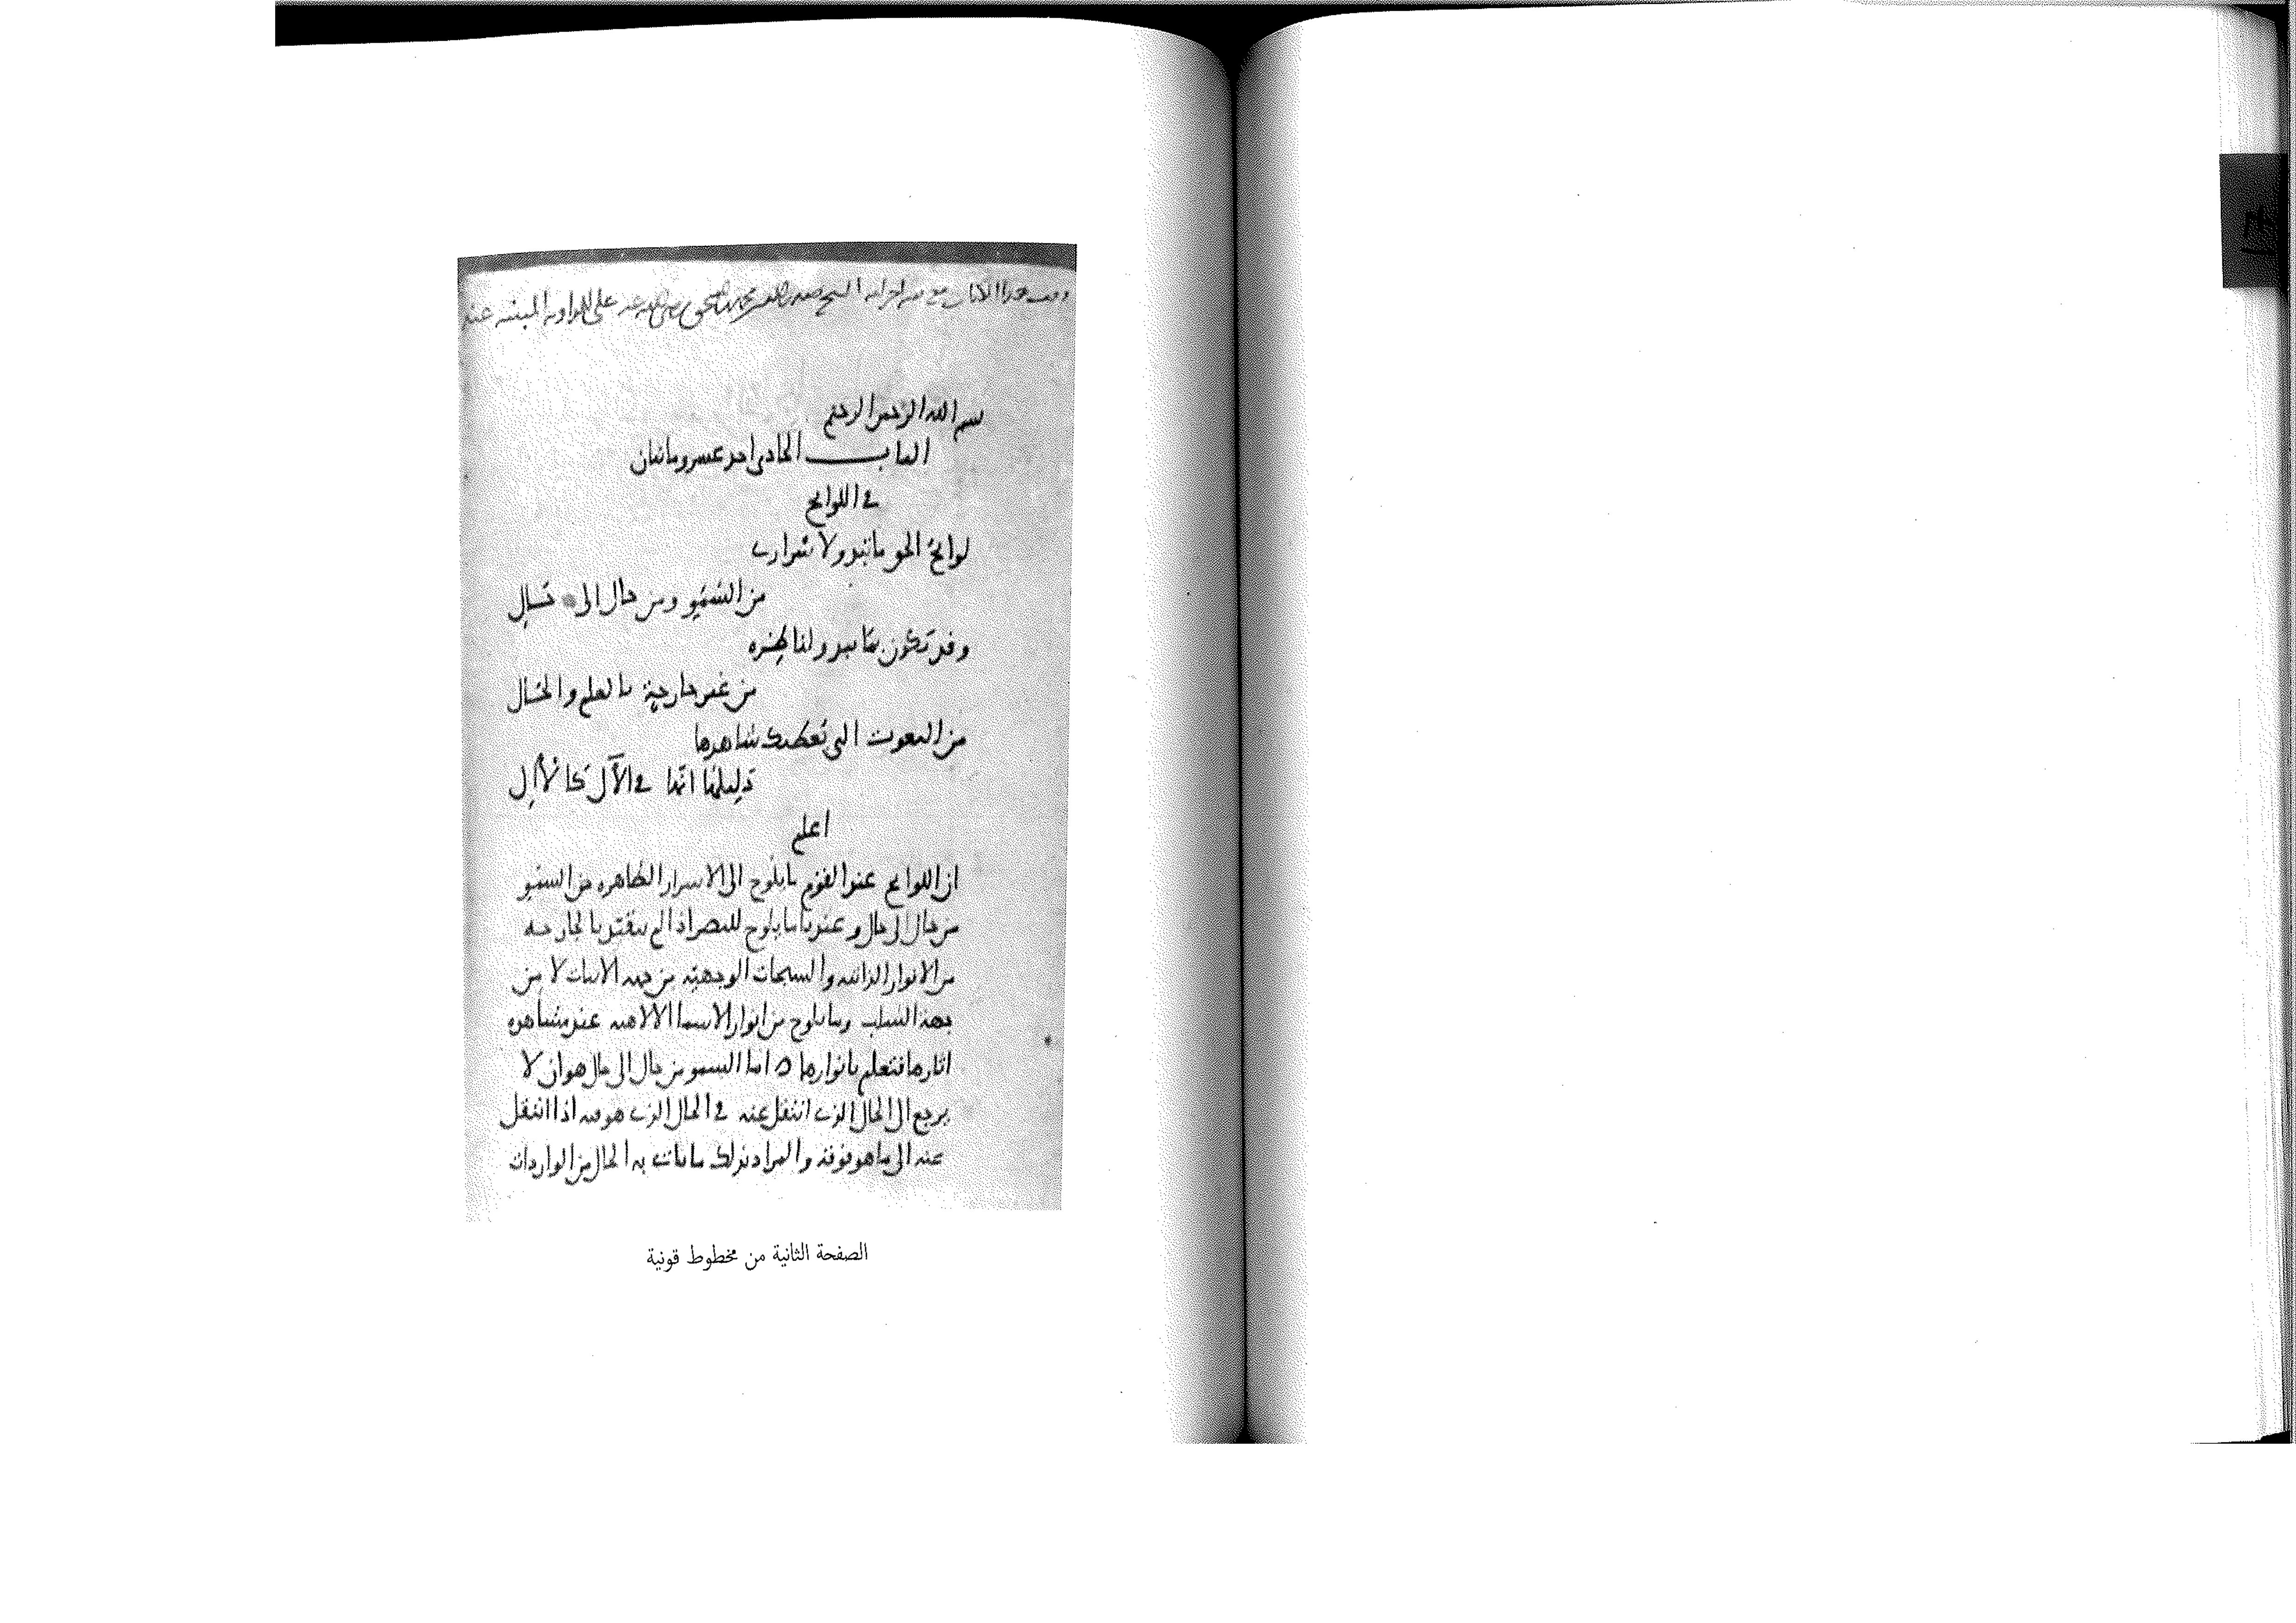 وقف هذا الكتاب مع الشيخ صدر الدين محمد بن اسحق رضي الله عنه على عند
بسم الله الرحمن الرحيم
الباب الحادي احد عشر وماىتان
في اللوايح
لوايح الحق ما تبدو لاسراري
من السمو ومن حال الى حال
وقد تكون بما يبدو لناظره
من غير جارحة بالعلم والحال
من النعوت التي تعطيك شاهدها
دليلنا في الآل كالآل
اعلم
ان اللوايح عند القوم ما يلوح الى الاسرار الظاهره من السمو
من حال الى حال وعندنا ما يلوح للبصر اذا لم يتقيد بالجارحه
من الانوار الذاتيه والسبحات الوجهيه من جهه الاثبات لا من
جهه السلب وما يلوح من انوار الاسما الالاهيه عند مشاهده
اثارها فتعلم بانوارها ه اما السمو من حال الى حال هو ان لا
يرجع الى الحال الذي انتقل عنه في الحال الذي هو فيه اذا انتقل
عنه الى ما هو فوقه والمراد بذلك ما ياتي به الحال من الواردات
الصفحة الثانية من مخطوط قونية